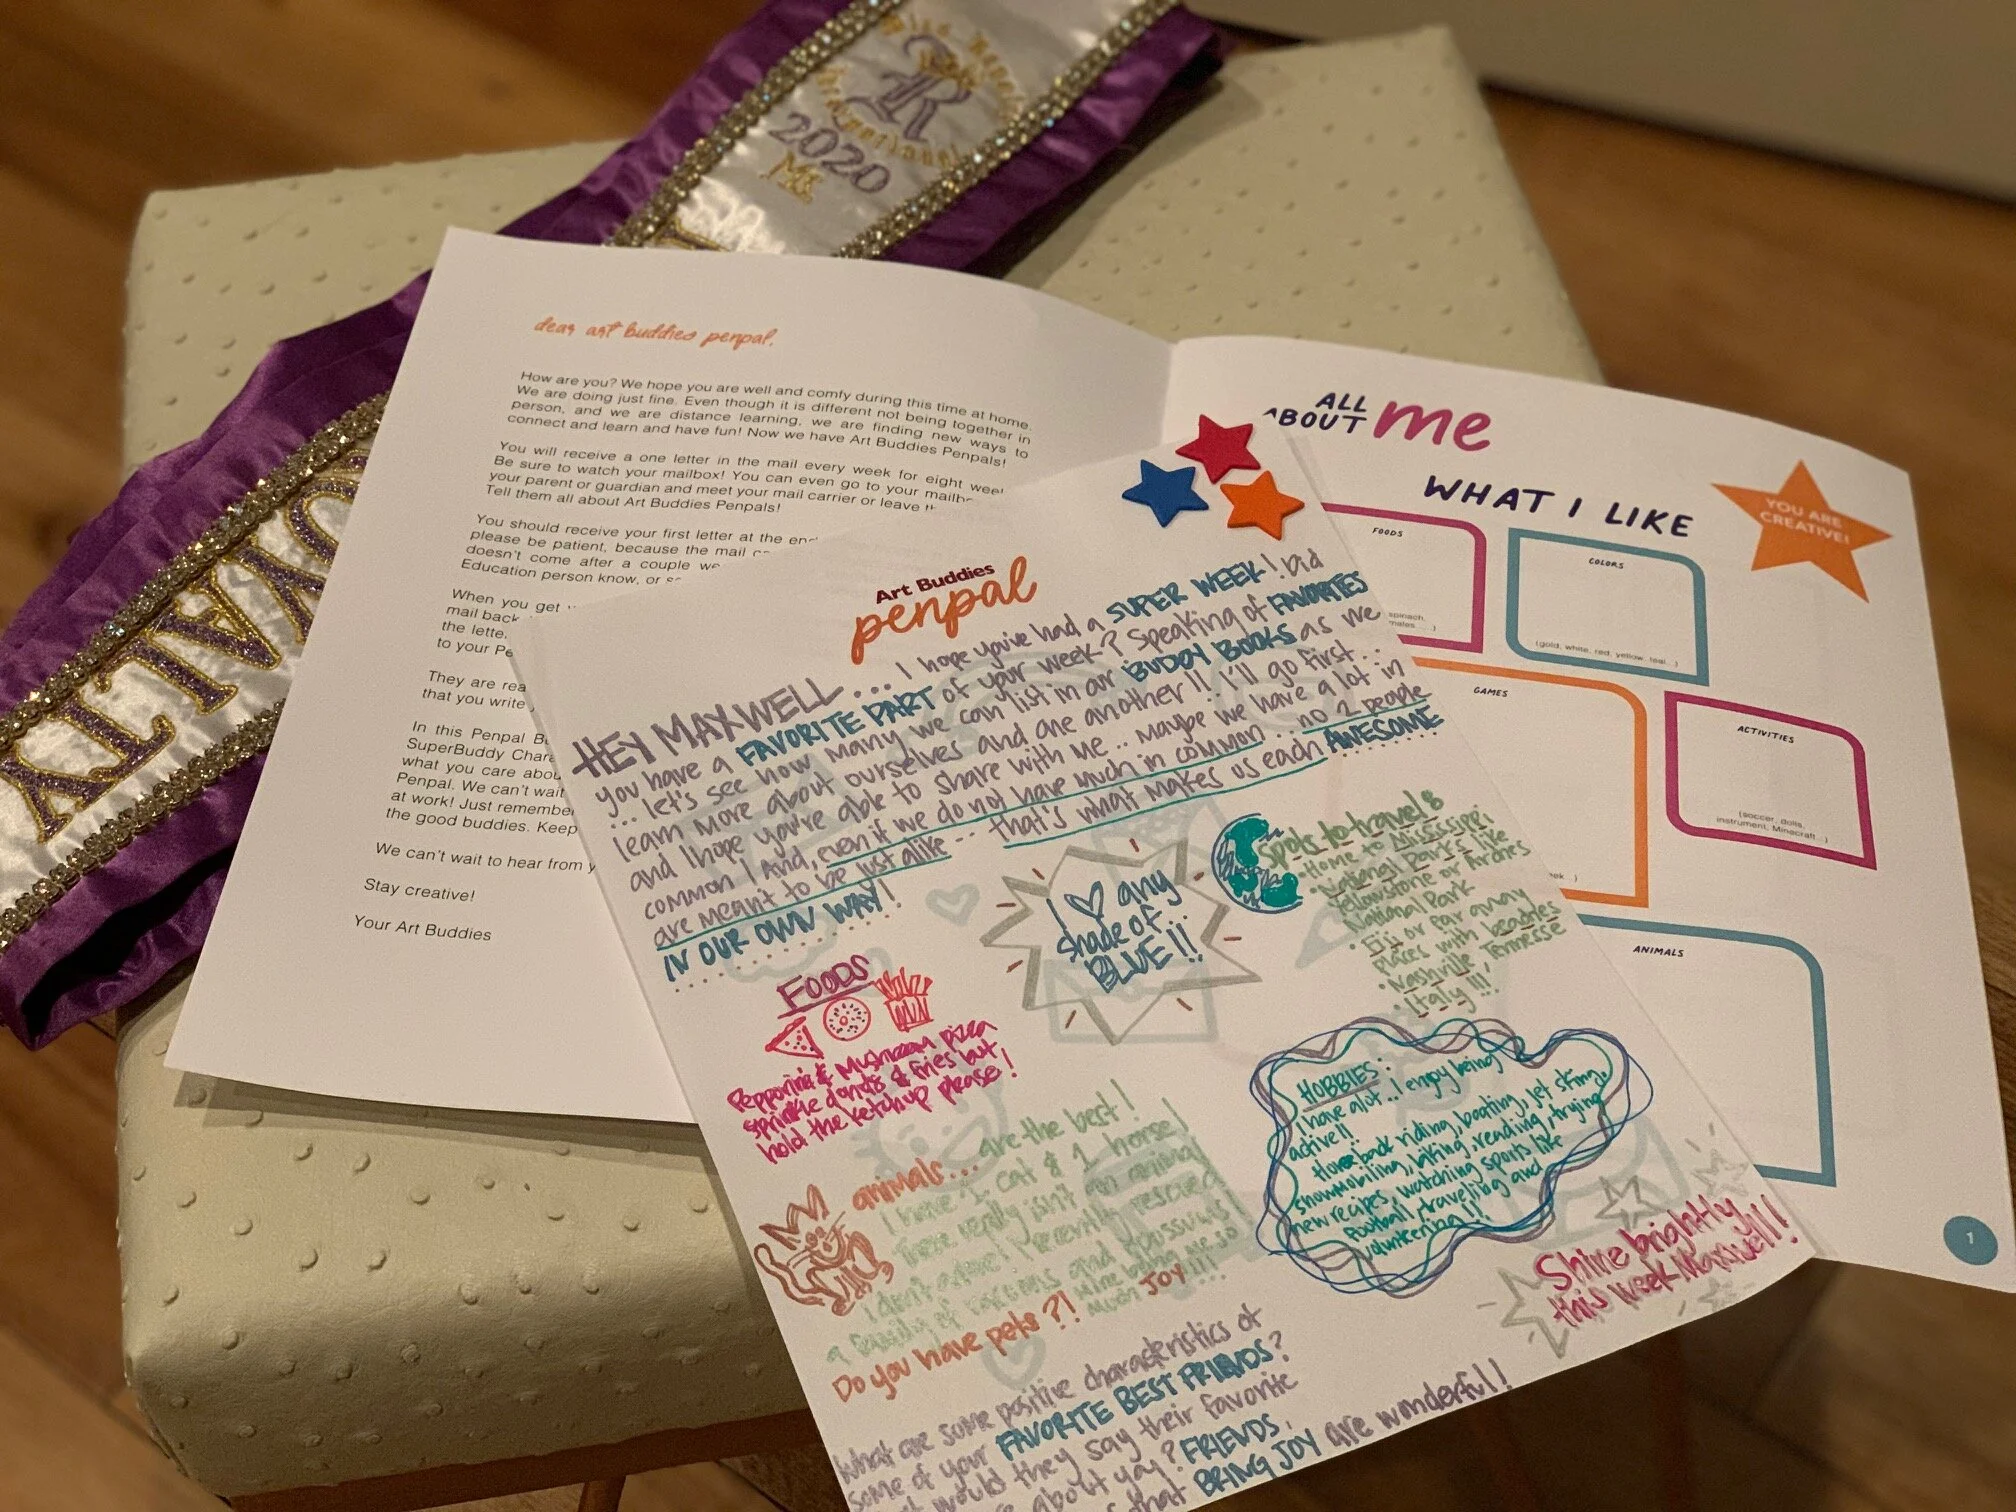 2020
Ms.
ROYALTY
dear art buddies penpal,
How are you? We hope you are well and comfy during this time at home.
We are doing just fine. Even though it is different not being together in
person, and we are distance learning, we are finding new ways to
connect and learn and have fun! Now we have Art Buddies Penpals!
You will receive a one letter in the mail every week for eight
Be sure to watch your mailbox! You can even go to your
your parent or guardian and meet your mail carrier or leave
Tell them all about Art Buddies Penpals!
You should receive your first letter at the
please be patient, because the mail
doesn't come after a couple
Education person know, or
When you get
mail back
the
to your
They are
that you write
In this Penpal
SuperBuddy
what you care
Penpal. We can't wait
at work! Just remember
the good buddies. Keep
We can't wait to hear from
Stay creative!
Your Art Buddies
ALL
ABOUT me
WHAT I LIKE
YOU ARE
CREATIVE!
FOODS
spinach,
COLORS
(gold, white, red, yellow, teal...)
GAMES
ACTIVITIES
(soccer, dolls,
instrument, Minecraft...)
ANIMALS
1
Art Buddies
penpal
HEY MAXWELL... I hope you've had a SUPER WEEK! Did
you have a FAVORITE PART of your week? Speaking of FAVORITES
... let's see how many we can list in our BUDDY BOOKS as we
learn more about ourselves and one another!! I'll go first...
and I hope you're able to share with me.. Maybe we have a lot in
common! And, even if we do not have much in common... no 2 people
are meant to be just alike... that's what makes us each AWESOME
IN OUR OWN WAY!
I ♡ any
shade of...
BLUE!!
Spots to travel:
• Home to Mississippi
• National Parks like
Yellowstone or Arches
National Park
• Fiji or far away
places with beaches
• Nashville, Tennesse
• Italy!!!
FOODS
Pepporini & Mushroom pizza
sprinkle donuts & fries but
hold the ketchup please!
animals... are the best!
I have 1 cat & 1 horse!
There really isn't an animal
I don't adore! I recently rescued
a family of racoons and opossums!
Do you have pets?! Mine bring me so
much JOY!!!
HOBBIES:
I have alot... I enjoy being
active!!
Horseback riding, boating, jet skiing,
snowmobiling, biking, reading, trying
new recipes, watching sports like
football, traveling and
volunteering!!!
Shine brightly
this week Maxwell!!
What are some positive characteristics of
some of your FAVORITE BEST FRIENDS?
would they say their favorite
about you? FRIENDS
that BRING JOY are wonderful!